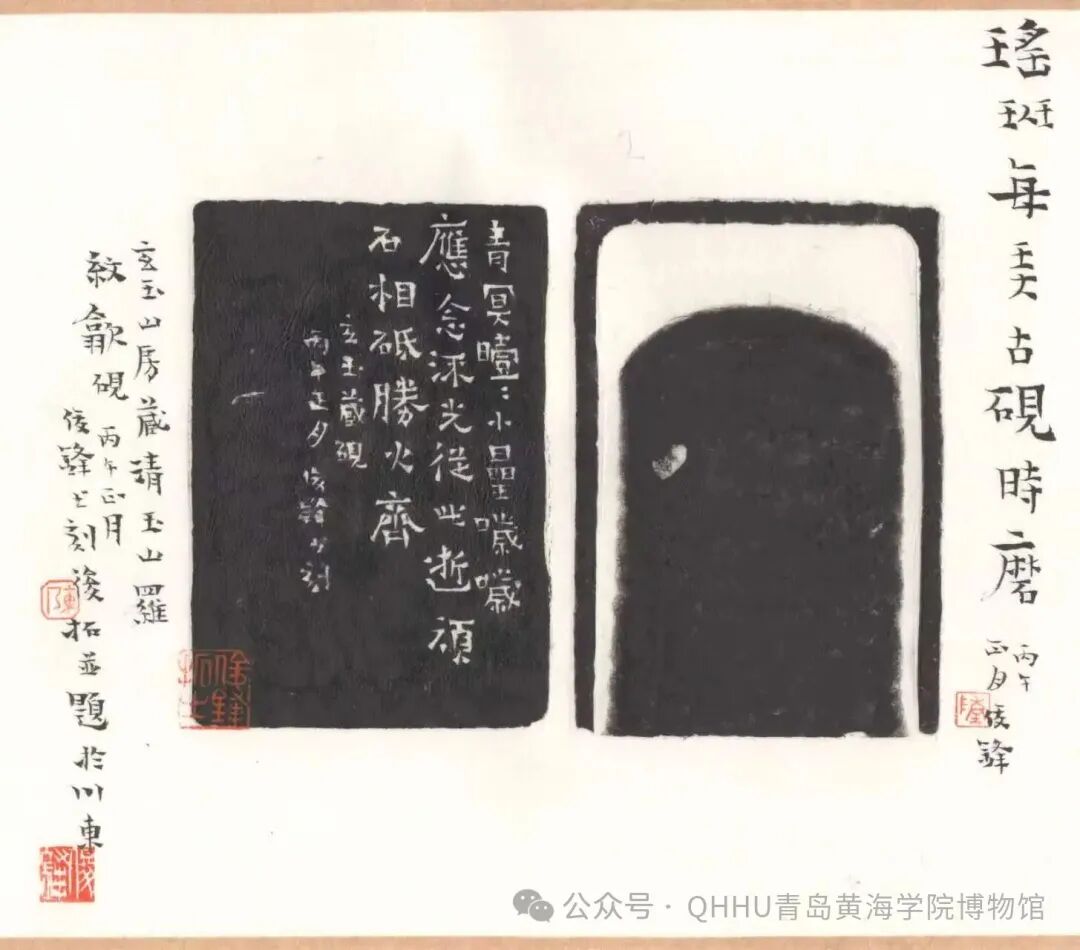 瑤
每
古硯時
磨
丙午
正月
俊鋒
青冥曀
小曐
應念流光從此逝頑
石相砥勝火齊
玄玉藏硯
丙午正月俊鋒
刻
玄玉山房藏清玉山羅
紋歙硯
丙午正月
俊鋒
刻後拓並題於川東
公众号 · QHHU青岛黄海学院博物馆